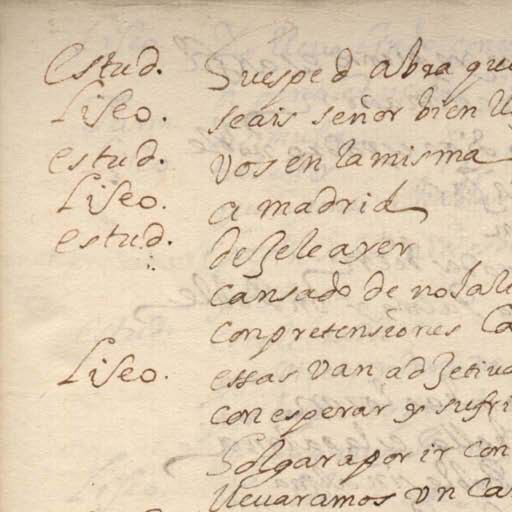 Estud. Huesped abra que
Liseo. seais señor bien ll
estud. vos en la misma
Liseo. a madrid
estud. deJele ayer
cansado de no sali
con pretensiones ca
Liseo. essas van adJetiva
con esperar y sufri
Holgara por ir con
lleuaramos vn ca